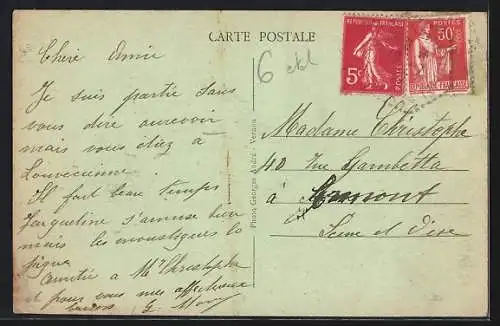 CARTE POSTALE
REPUBLIQUE FRANÇAISE
5c
POSTES
POSTES
50c
REPUBLIQUE FRANÇAISE
6
Chère Amie
Je suis partie sans
vous dire aurevoir
mais vous étiez à
Louvecienne.
Il fait beau temps
Jacqueline s'amuse bien
mais les moustiques la
pique
Amitié à Mr Christophe
et pour vous mes affectueux
baisers G.
Photo Georges André - Vernon
Madame Christophe
40 Rue Gambetta
à
Seine et Oise